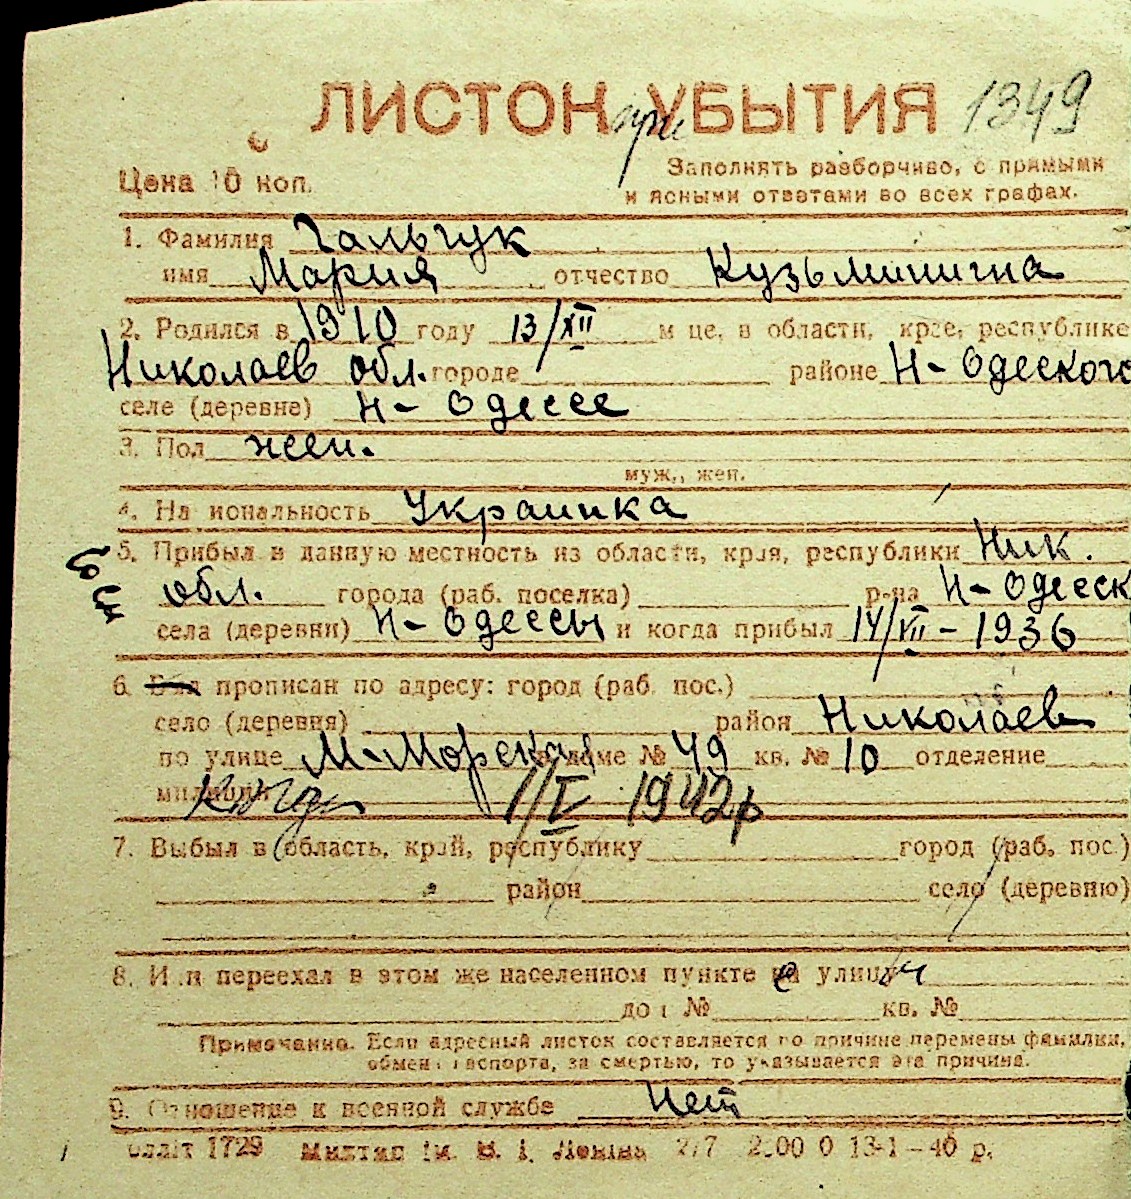 ЛИСТОК при УБЫТИЯ 1349
Цена 10 коп.
Заполнять разборчиво, с прямыми
и ясными ответами во всех графах.
1. Фамилия Гальчук
имя Мария отчество Кузьминична
2. Родился в 1910 году 13/XII м це, в области, крае, республике
Николаев обл. городе районе Н-Одеского
селе (деревне) Н-Одессе
3. Пол жен.
муж., жен.
4. На иональность Украинка
5. Прибыл в данную местность из области, края, республики Ник.
обл. города (раб. поселка) р-на Н-Одесск
села (деревни) Н-Одессы и когда прибыл 14/VII-1936
6. Был прописан по адресу: город (раб. пос.)
село (деревня) район Николаев
по улице М-Морская в доме № 49 кв. № 10 отделение
милиции Когда 1/V 1942р
7. Выбыл в область, край, республику город (раб. пос.)
район село (деревню)
8. Или переехал в этом же населенном пункте с улицы
дом № кв. №
Примечание. Если адресный листок составляется по причине перемены фамилии,
обмена паспорта, за смертью, то указывается эта причина.
9. Отношение к военной службе Нет
Облліт 1729 ім. В. І. Леніна 2/7 13-1-40 р.